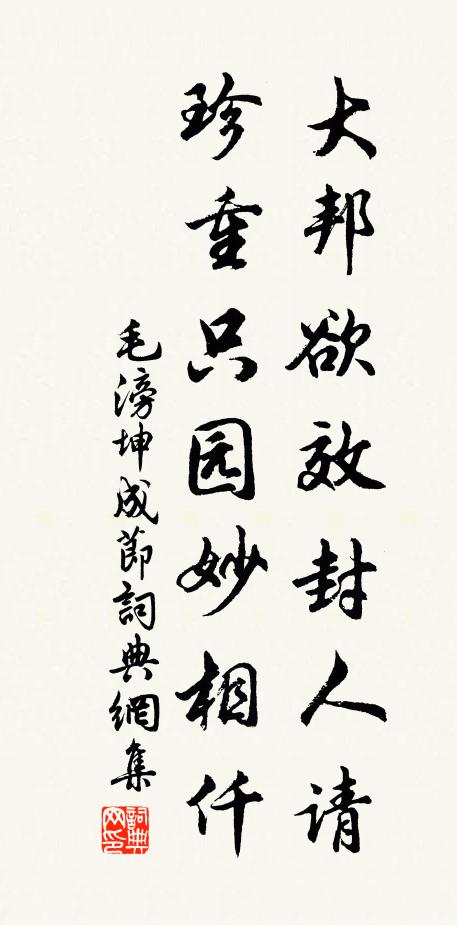 大邦欲效封人请
珍重只园妙相仟
毛滂坤成節詞典網集
詞典網印